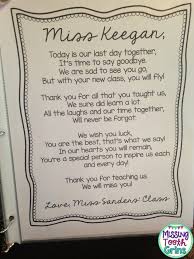 Miss Keegan,
Today is our last day together,
It's time to say goodbye.
We are sad to see you go,
But with your new class, you will fly!
Thank You For all that you taught us,
We sure did learn a lot.
All the laughs and our time together,
Will never be Forgot.
We wish you luck,
You are the best, that's what we say!
In our hearts you will remain,
You're a special person to inspire us each
and every day!
Thank you For teaching us
We will miss you!
Love, Miss Sanders Class
Missing
Tooth
Grins